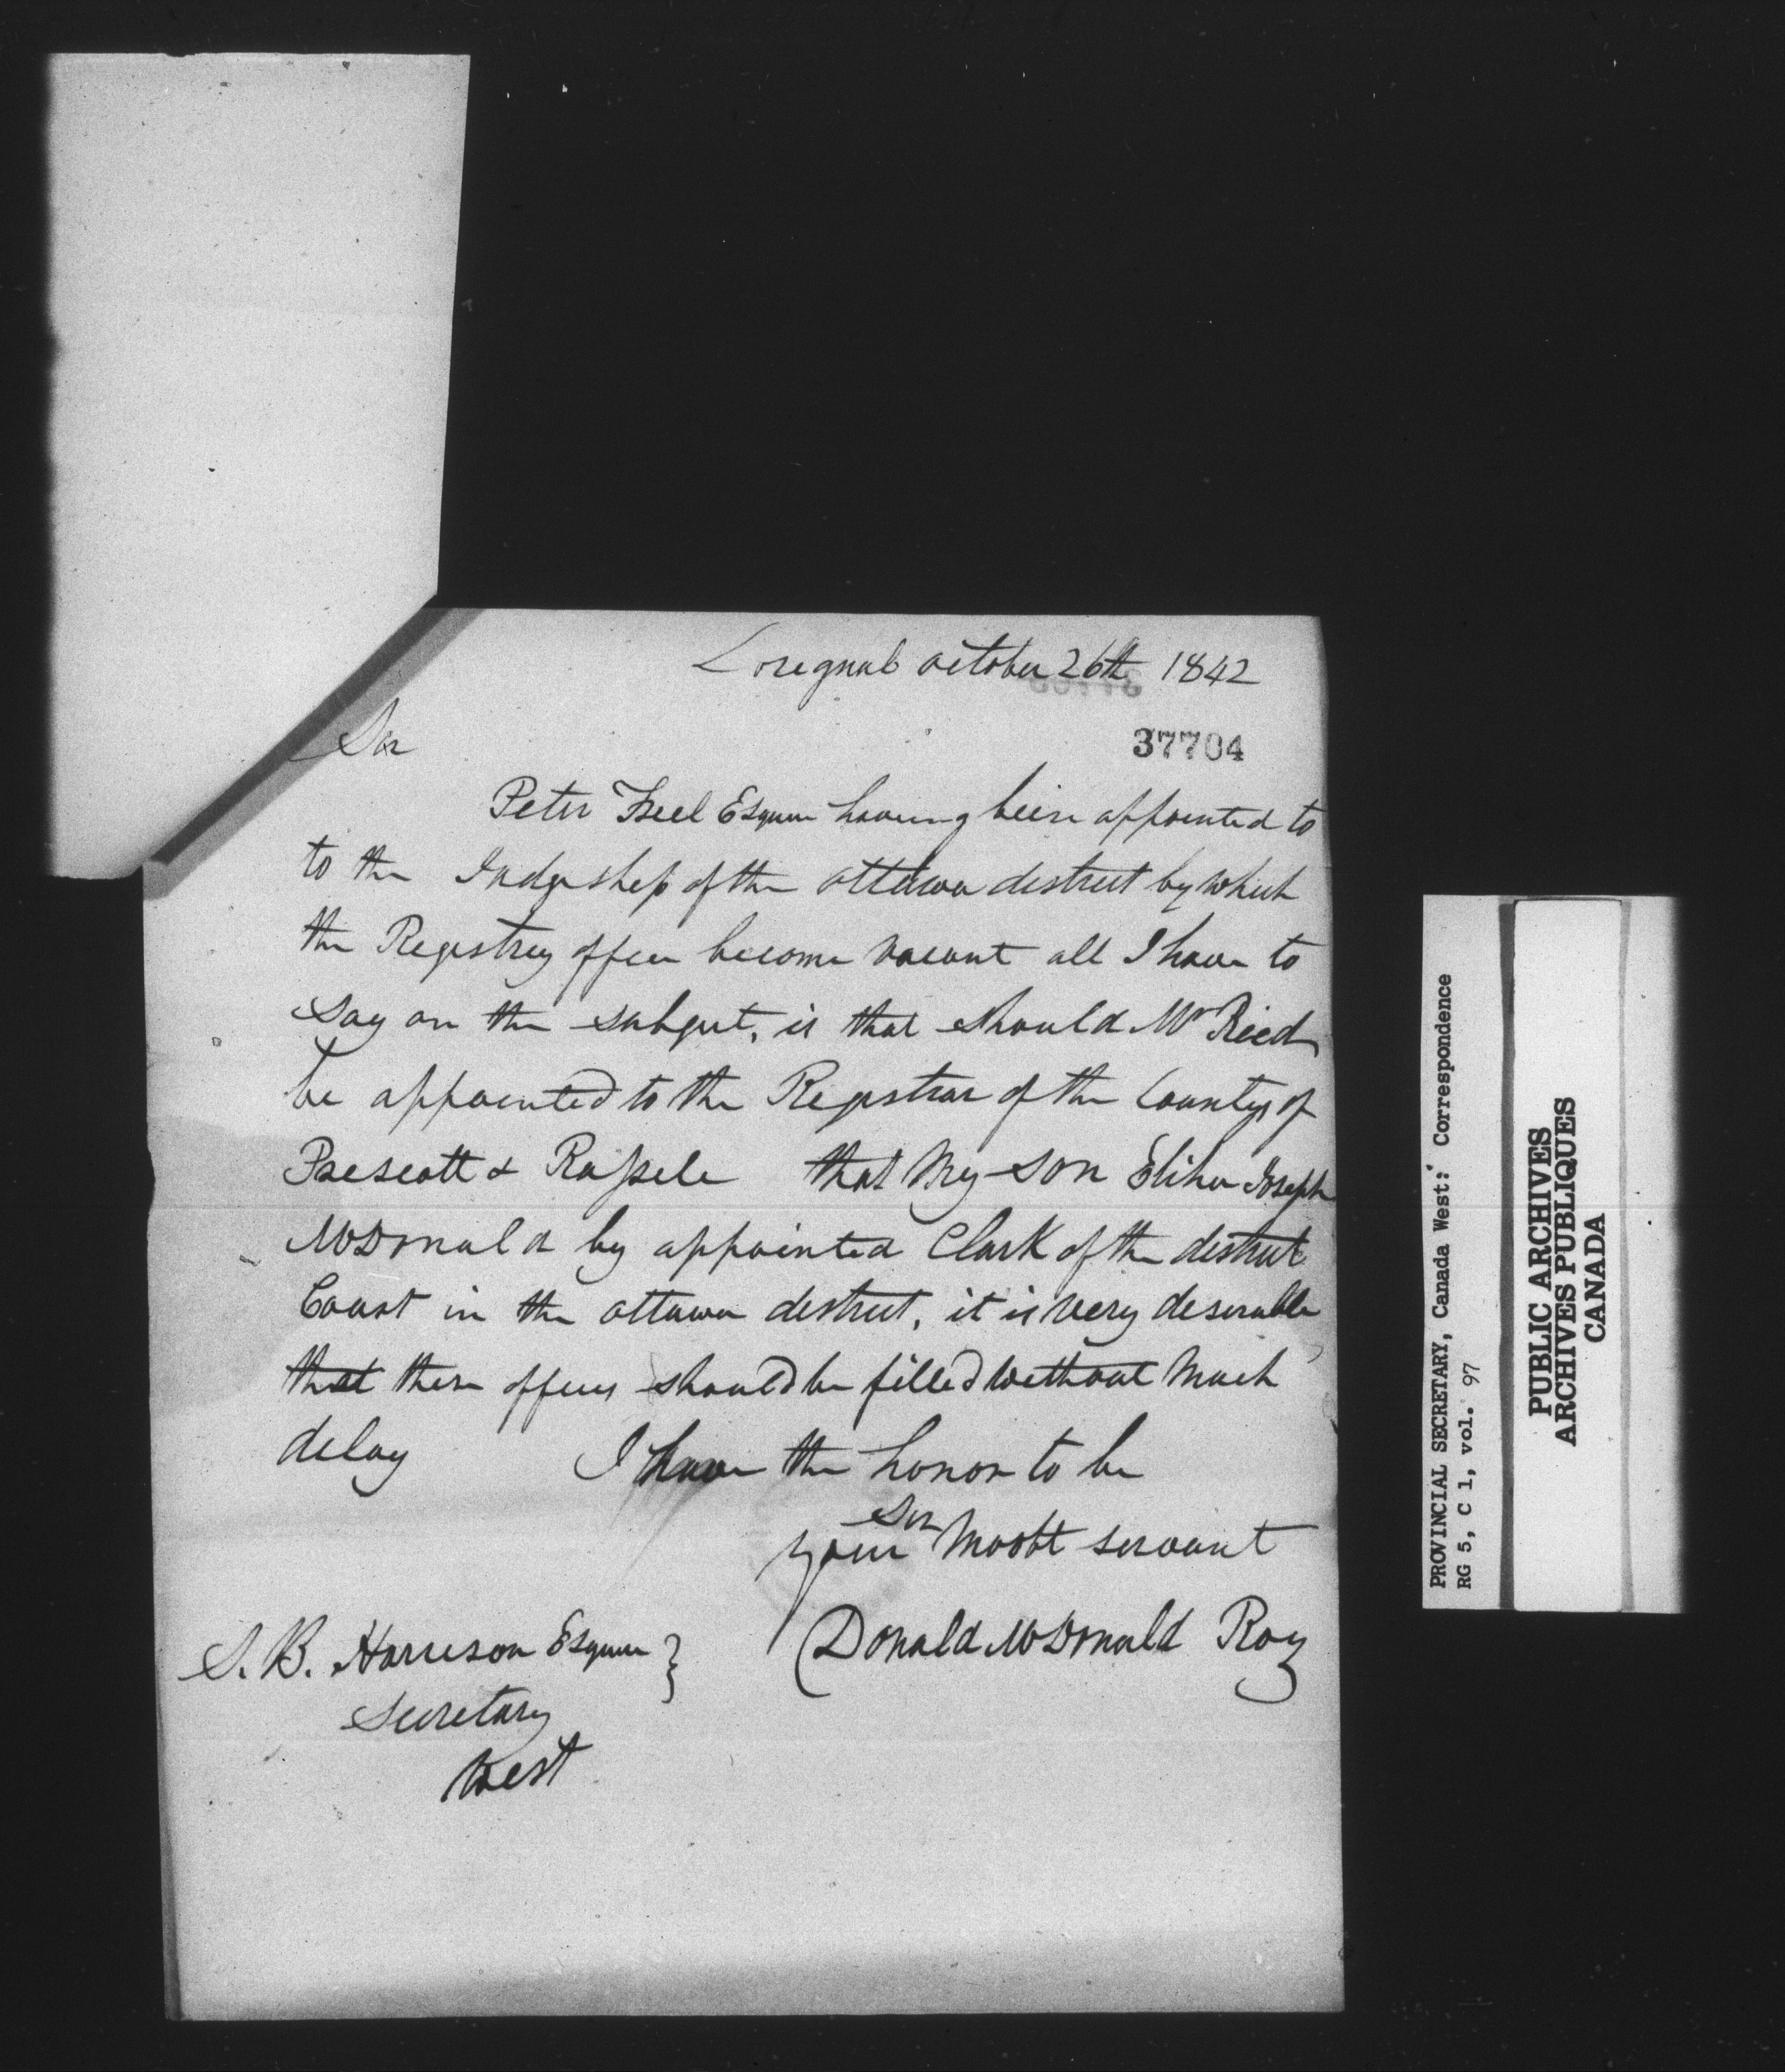 Loregnal october 26th 1842
37704
Sir
Peter Freel Esquire having been appointed to
to the Judgeship of the ottawa destrect by which
the Registrey office become vacant all I have to
say on the subject, is that should Mr Reed
be appointed to the Registrar of the County of
Prescott & Russele that my son Elihu Joseph
McDonald by appointed Clark of the destrect
Court in the ottawa destrect, it is very deserable
that these offices should be filled without much
delay I have the honor to be
Sir
your Mo obt servant
Donald McDonald Roy
S. B. Harreson Esquire }
Secretary
West
PROVINCIAL SECRETARY, Canada West: Correspondence
RG 5, C 1, vol. 97
PUBLIC ARCHIVES
ARCHIVES PUBLIQUES
CANADA